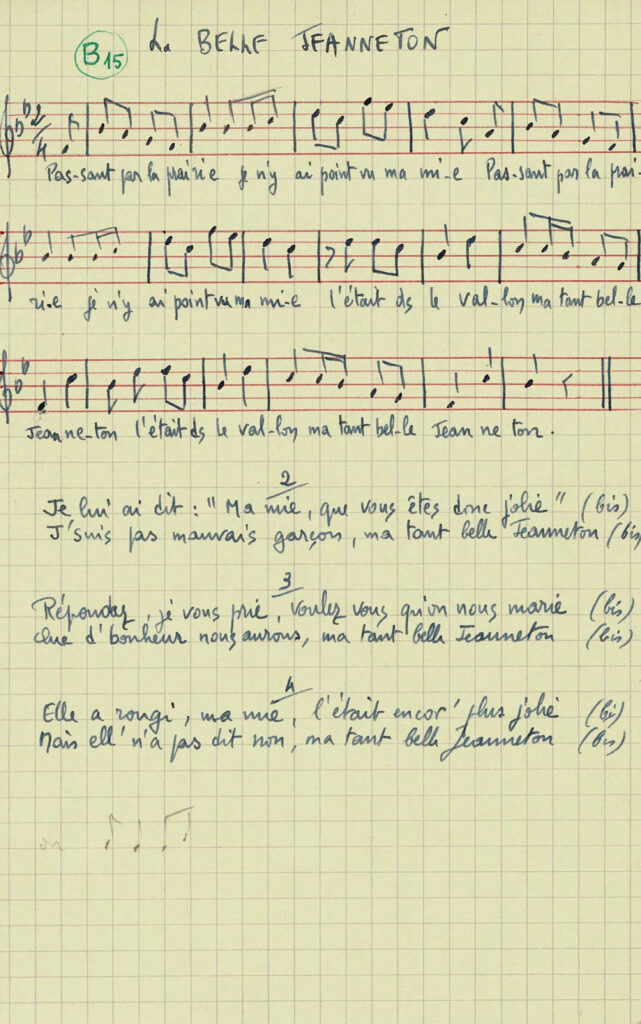 B15 La BELLE JEANNETON
2/4
Pas-sant par la prairie je n'y ai point vu ma mi-e Pas-sant par la prai-
ri-e je n'y ai point vu ma mi-e l'était ds le val-lon ma tant bel-le
Jeanne-ton l'était ds le val-lon ma tant bel-le Jean ne ton.
2
Je lui ai dit : "Ma mie, que vous êtes donc jolie" (bis)
J'suis pas mauvais garçon, ma tant belle Jeanneton (bis
3
Répondez, je vous prie, voulez vous qu'on nous marie (bis)
Que d'bonheur nous aurons, ma tant belle Jeanneton (bis)
4
Elle a rougi, ma mie, l'était encor' plus jolie (bi)
Mais ell' n'a pas dit non, ma tant belle Jeanneton (bis)
on